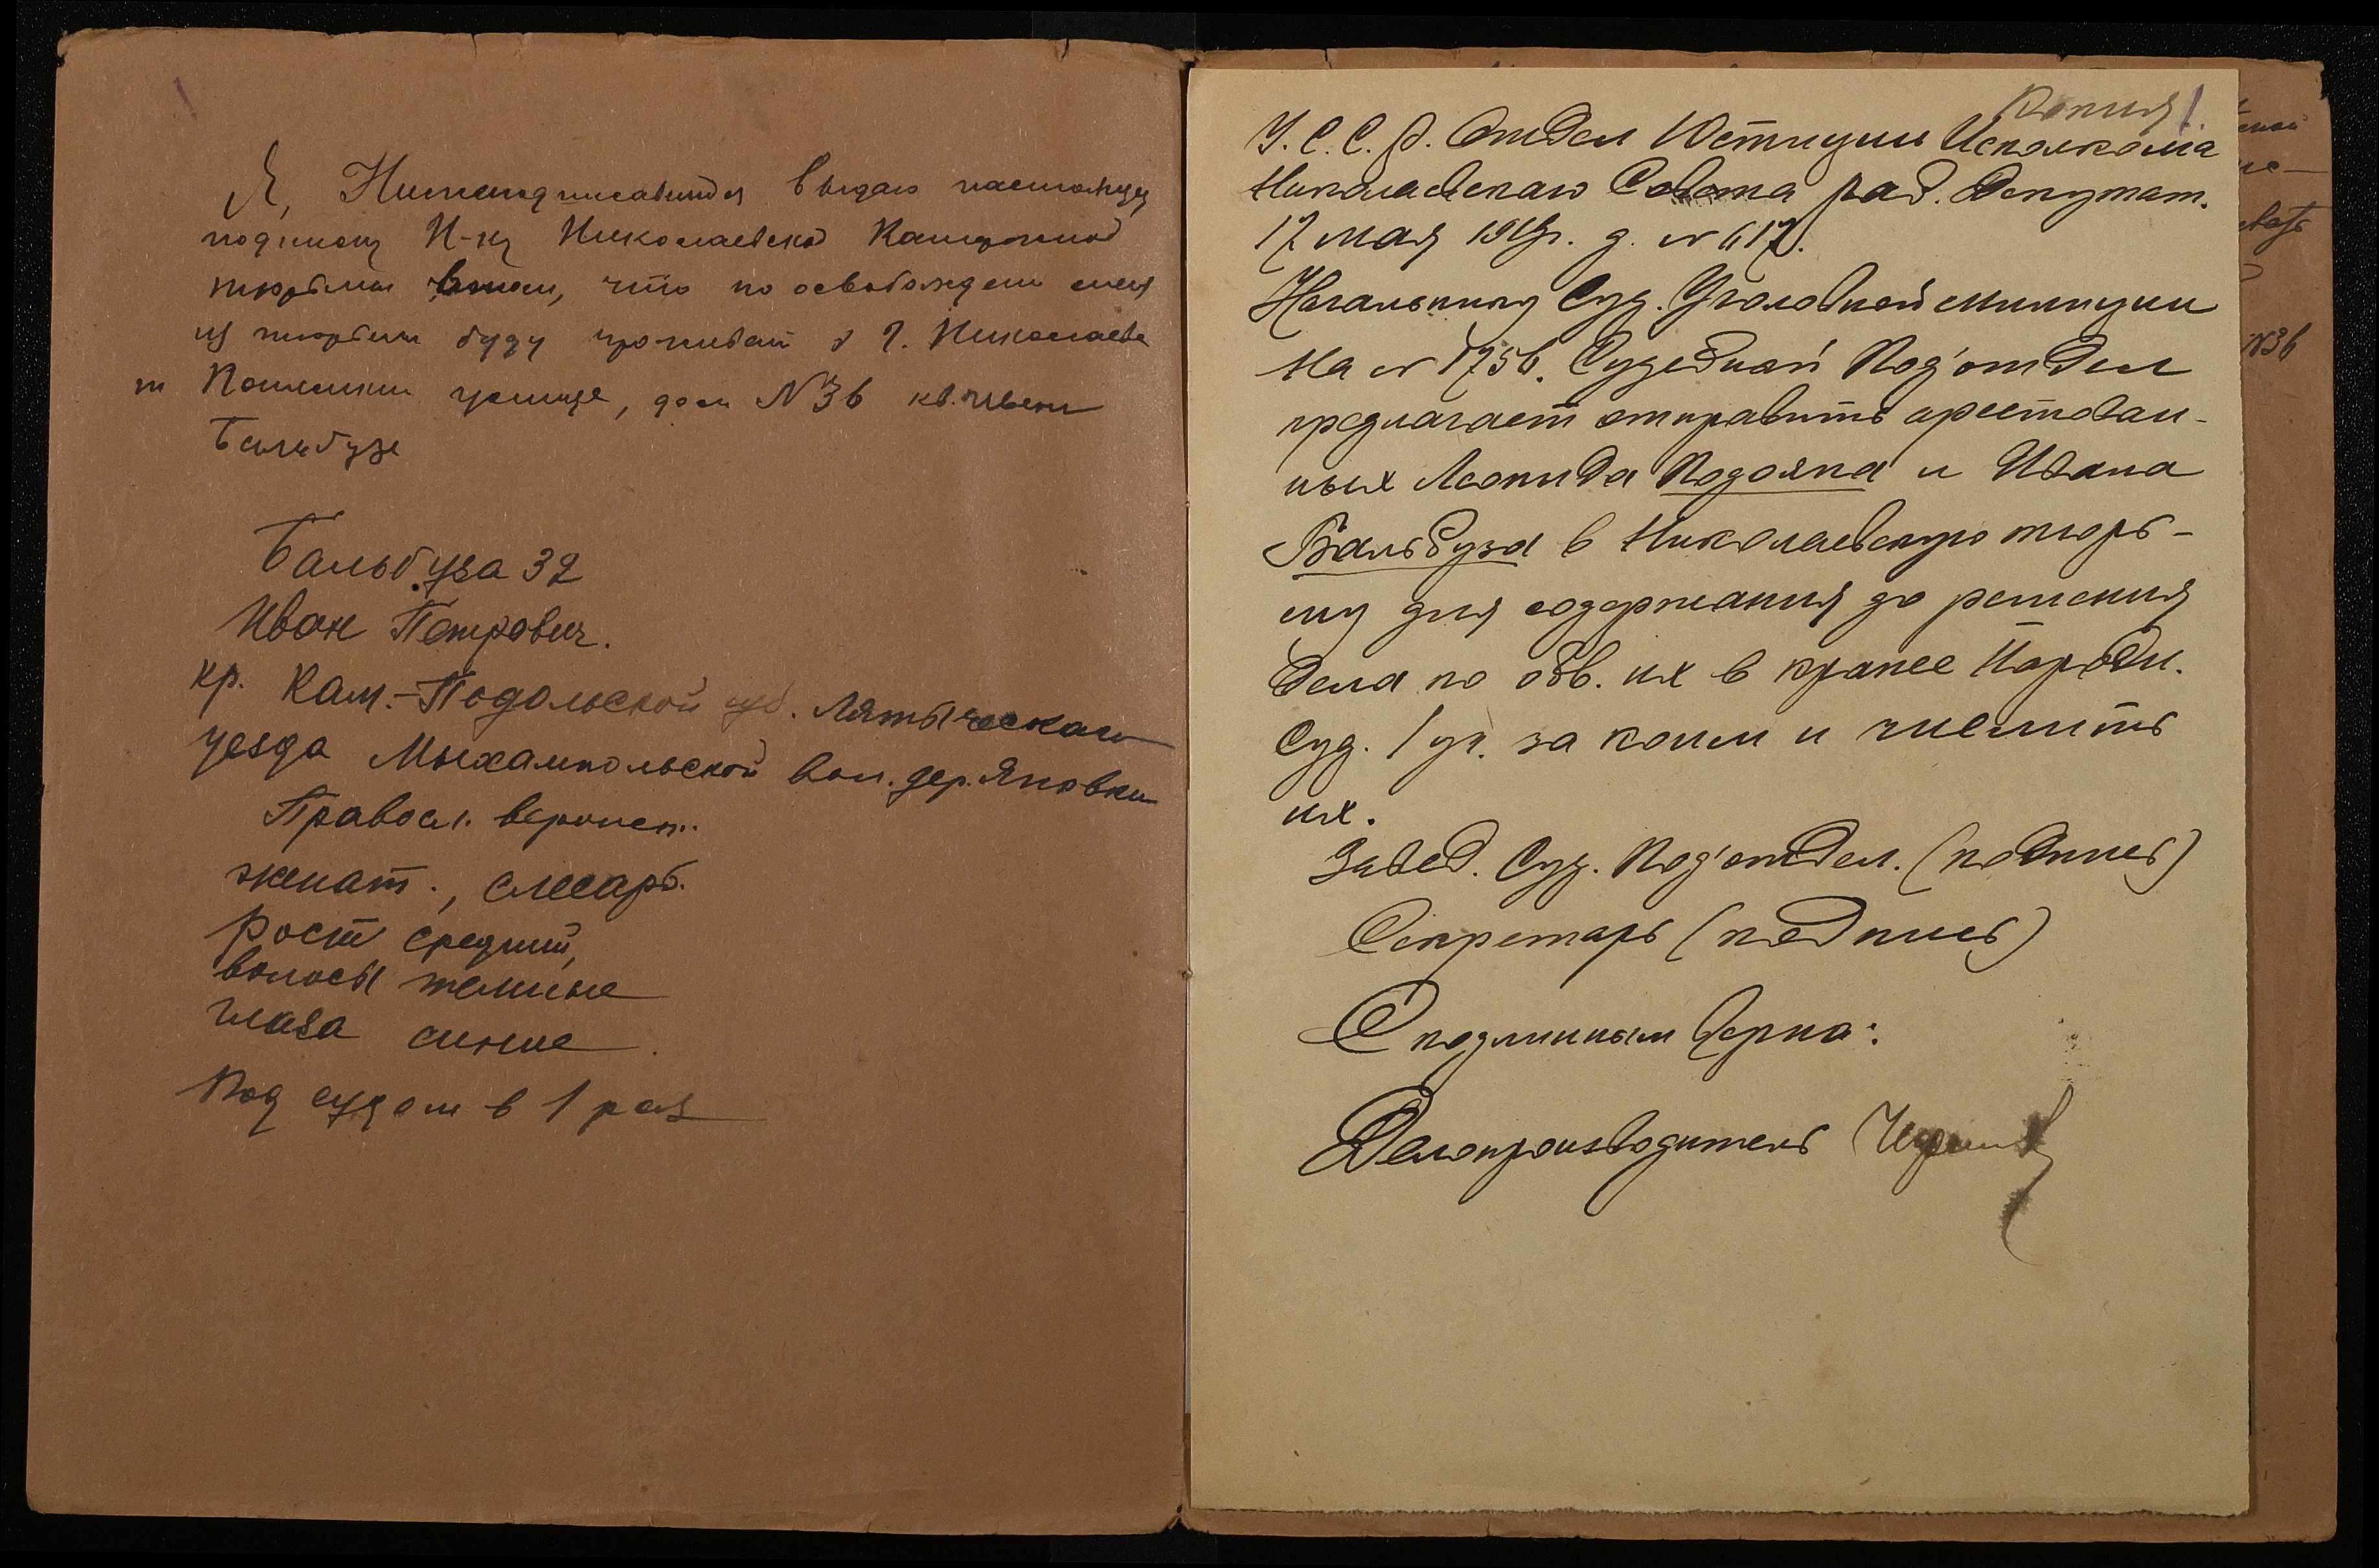 Я, Нижеподписавшийся выдаю настоящую
подписку Н-ку Николаевской Каторжной
тюрьмы в том, что по освобождении меня
из тюрьмы буду проживать в г. Николаеве
улице, дом № 36 кв.
Бальбузе
Бальбуза 32
Иван Петрович.
кр. Кам.-Подольской губ. Лятыческаго
уезда Мыхампольской вол. дер. Яновки
Правосл. вероисп.
женат., слесарь.
рост средний,
волосы темные
глаза синие
Под судом в 1 раз
Копия 1.
У. С. С. Р. Отдел Юстиции Исполкома
Николаевскаго Совета Раб. Депутат.
17 мая 1919 г. № 617.
Начальнику Суд. Уголовной милиции
На № 1756. Судебный Под'отдел
предлагает отправить арестован-
ных Леонида Подояна и Ивана
Бальбуза в Николаевскую тюрь-
му для содержания до решения
дела по обв. их в краже Народн.
Суд. 1 уч. за коим и числить
их.
Завед. Суд. Под'отдел. (подпись)
Секретарь (подпись)
С подлинным верно:
Делопроизводитель
№36